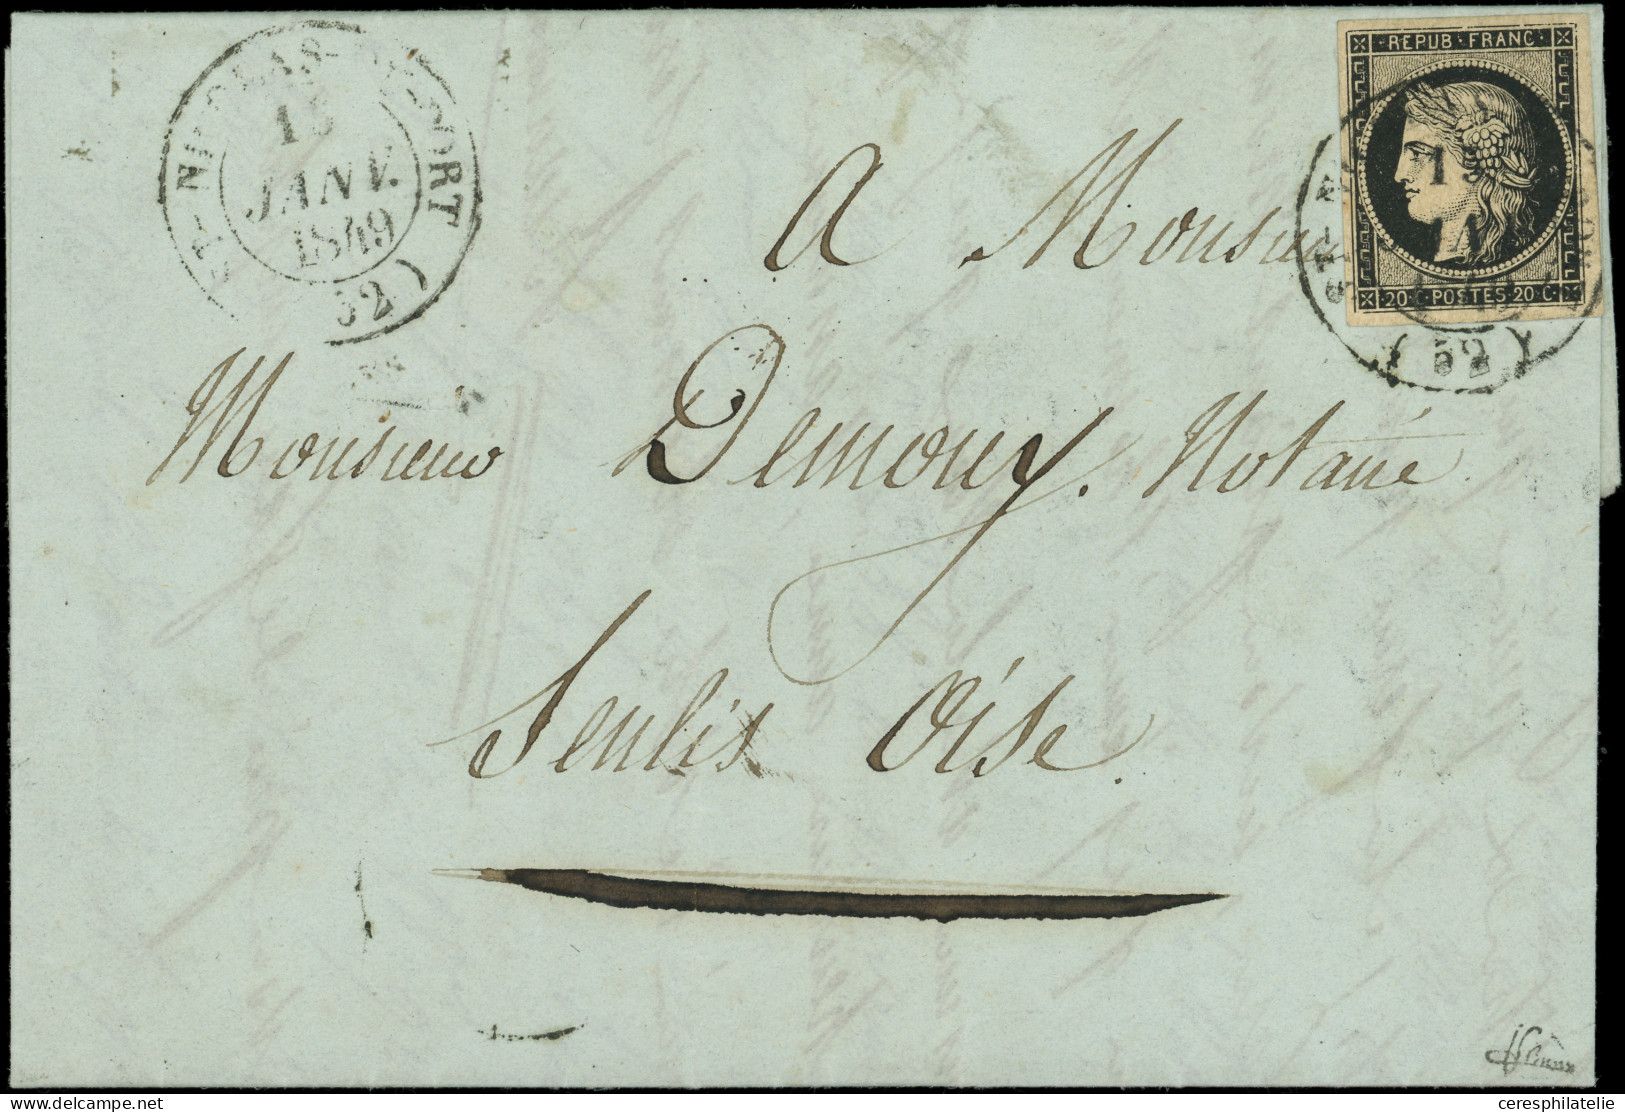 ST-NICOLAS-DU-PORT
JANV.
1849
(52)
REPUB·FRANC·
20·C·POSTES·20·C·
ST-N
(52)
A Monsieur
Monsieur Demouy. Notaire
Senlis Oise.
ceresphilatelie